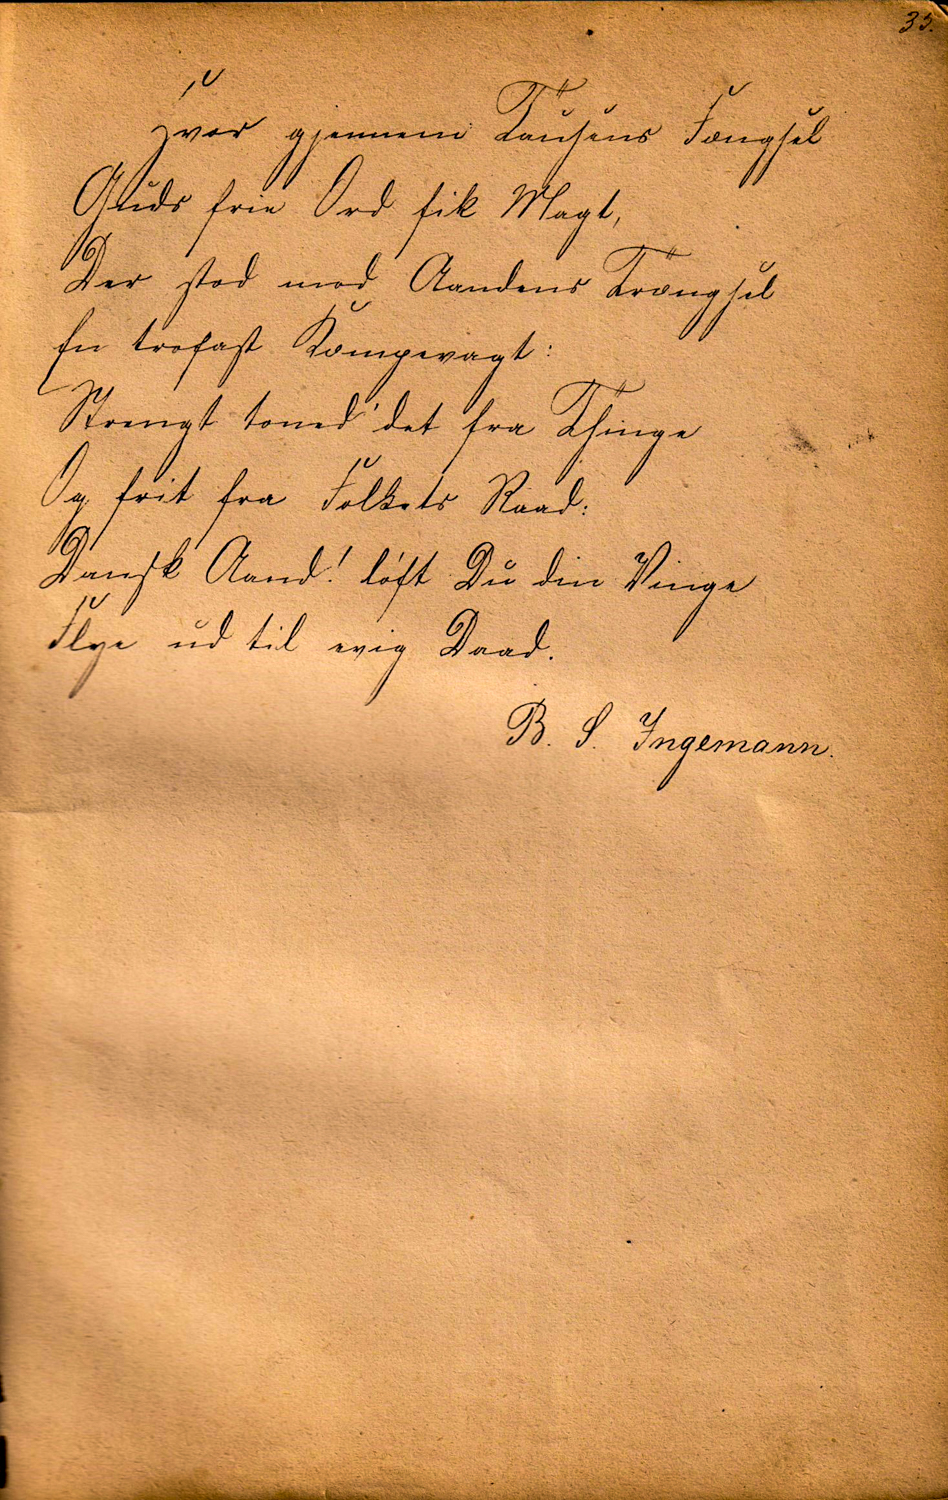 33.
Hvor gjennem Tausens Fængsel
Guds frie Ord fik Magt,
Der stod mod Aandens Trængsel
En trofast Kæmpevagt:
Strengt toned' det fra Thinge
Og frit fra Folkets Raad:
Dansk Aand! løft Du din Vinge
Flye ud til evig Daad.
B. S. Ingemann.